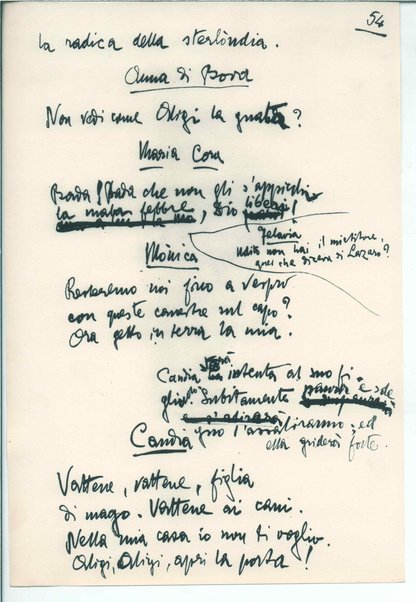 54
la radica della sterlóndia.
Anna di Bova
Non vedi come Aligi la guata?
Maria Cora
Bada! Bada che non gli s'appicchi
la mala febbre, Dio liberi!
Felavia
Udito non hai il mietitore,
quel che diceva di Lazaro?
Mònica
Resteremo noi fino a vespro
con queste canestre sul capo?
Ora getto in terra la mia.
Candia sarà intenta al suo fi-
glio. Subitamente
l'assaliranno, ed
ella griderà forte.
Candia
Vattene, vattene, figlia
di mago. Vattene ai cani.
Nella mia casa io non ti voglio.
Aligi, Aligi, apri la porta!